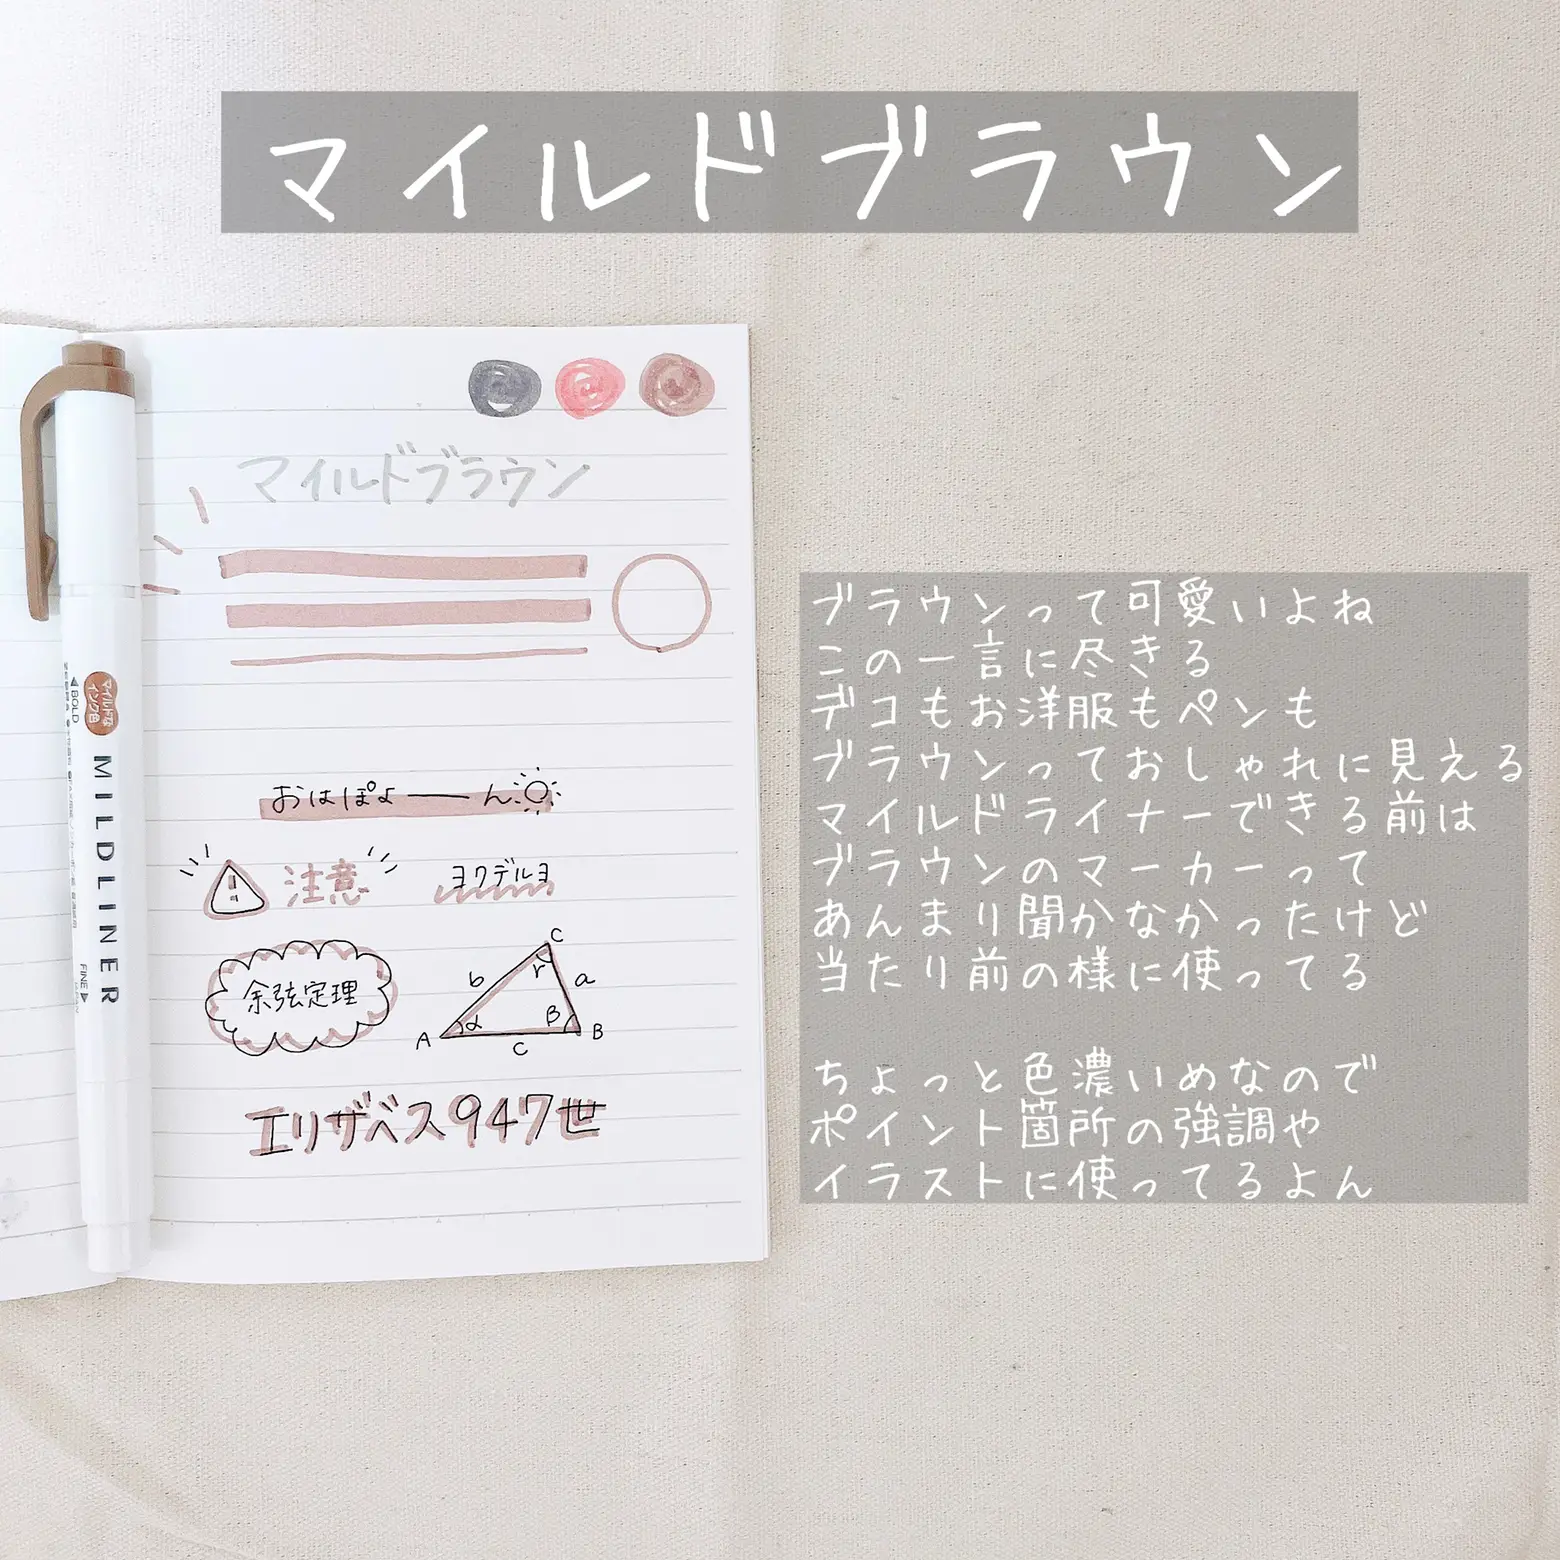 マイルドブラウン
マイルドブラウン
マイルドな
インク色
◀BOLD
ZEBRA
MILDLINER
FINE▶
おはぽよーん
注意
ヨクデルヨ
余弦定理
C
b
r
a
A
α
β
B
C
エリザベス947世
ブラウンって可愛いよね
この一言に尽きる
デコもお洋服もペンも
ブラウンっておしゃれに見える
マイルドライナーできる前は
ブラウンのマーカーって
あんまり聞かなかったけど
当たり前の様に使ってる
ちょっと色濃いめなので
ポイント箇所の強調や
イラストに使ってるよん